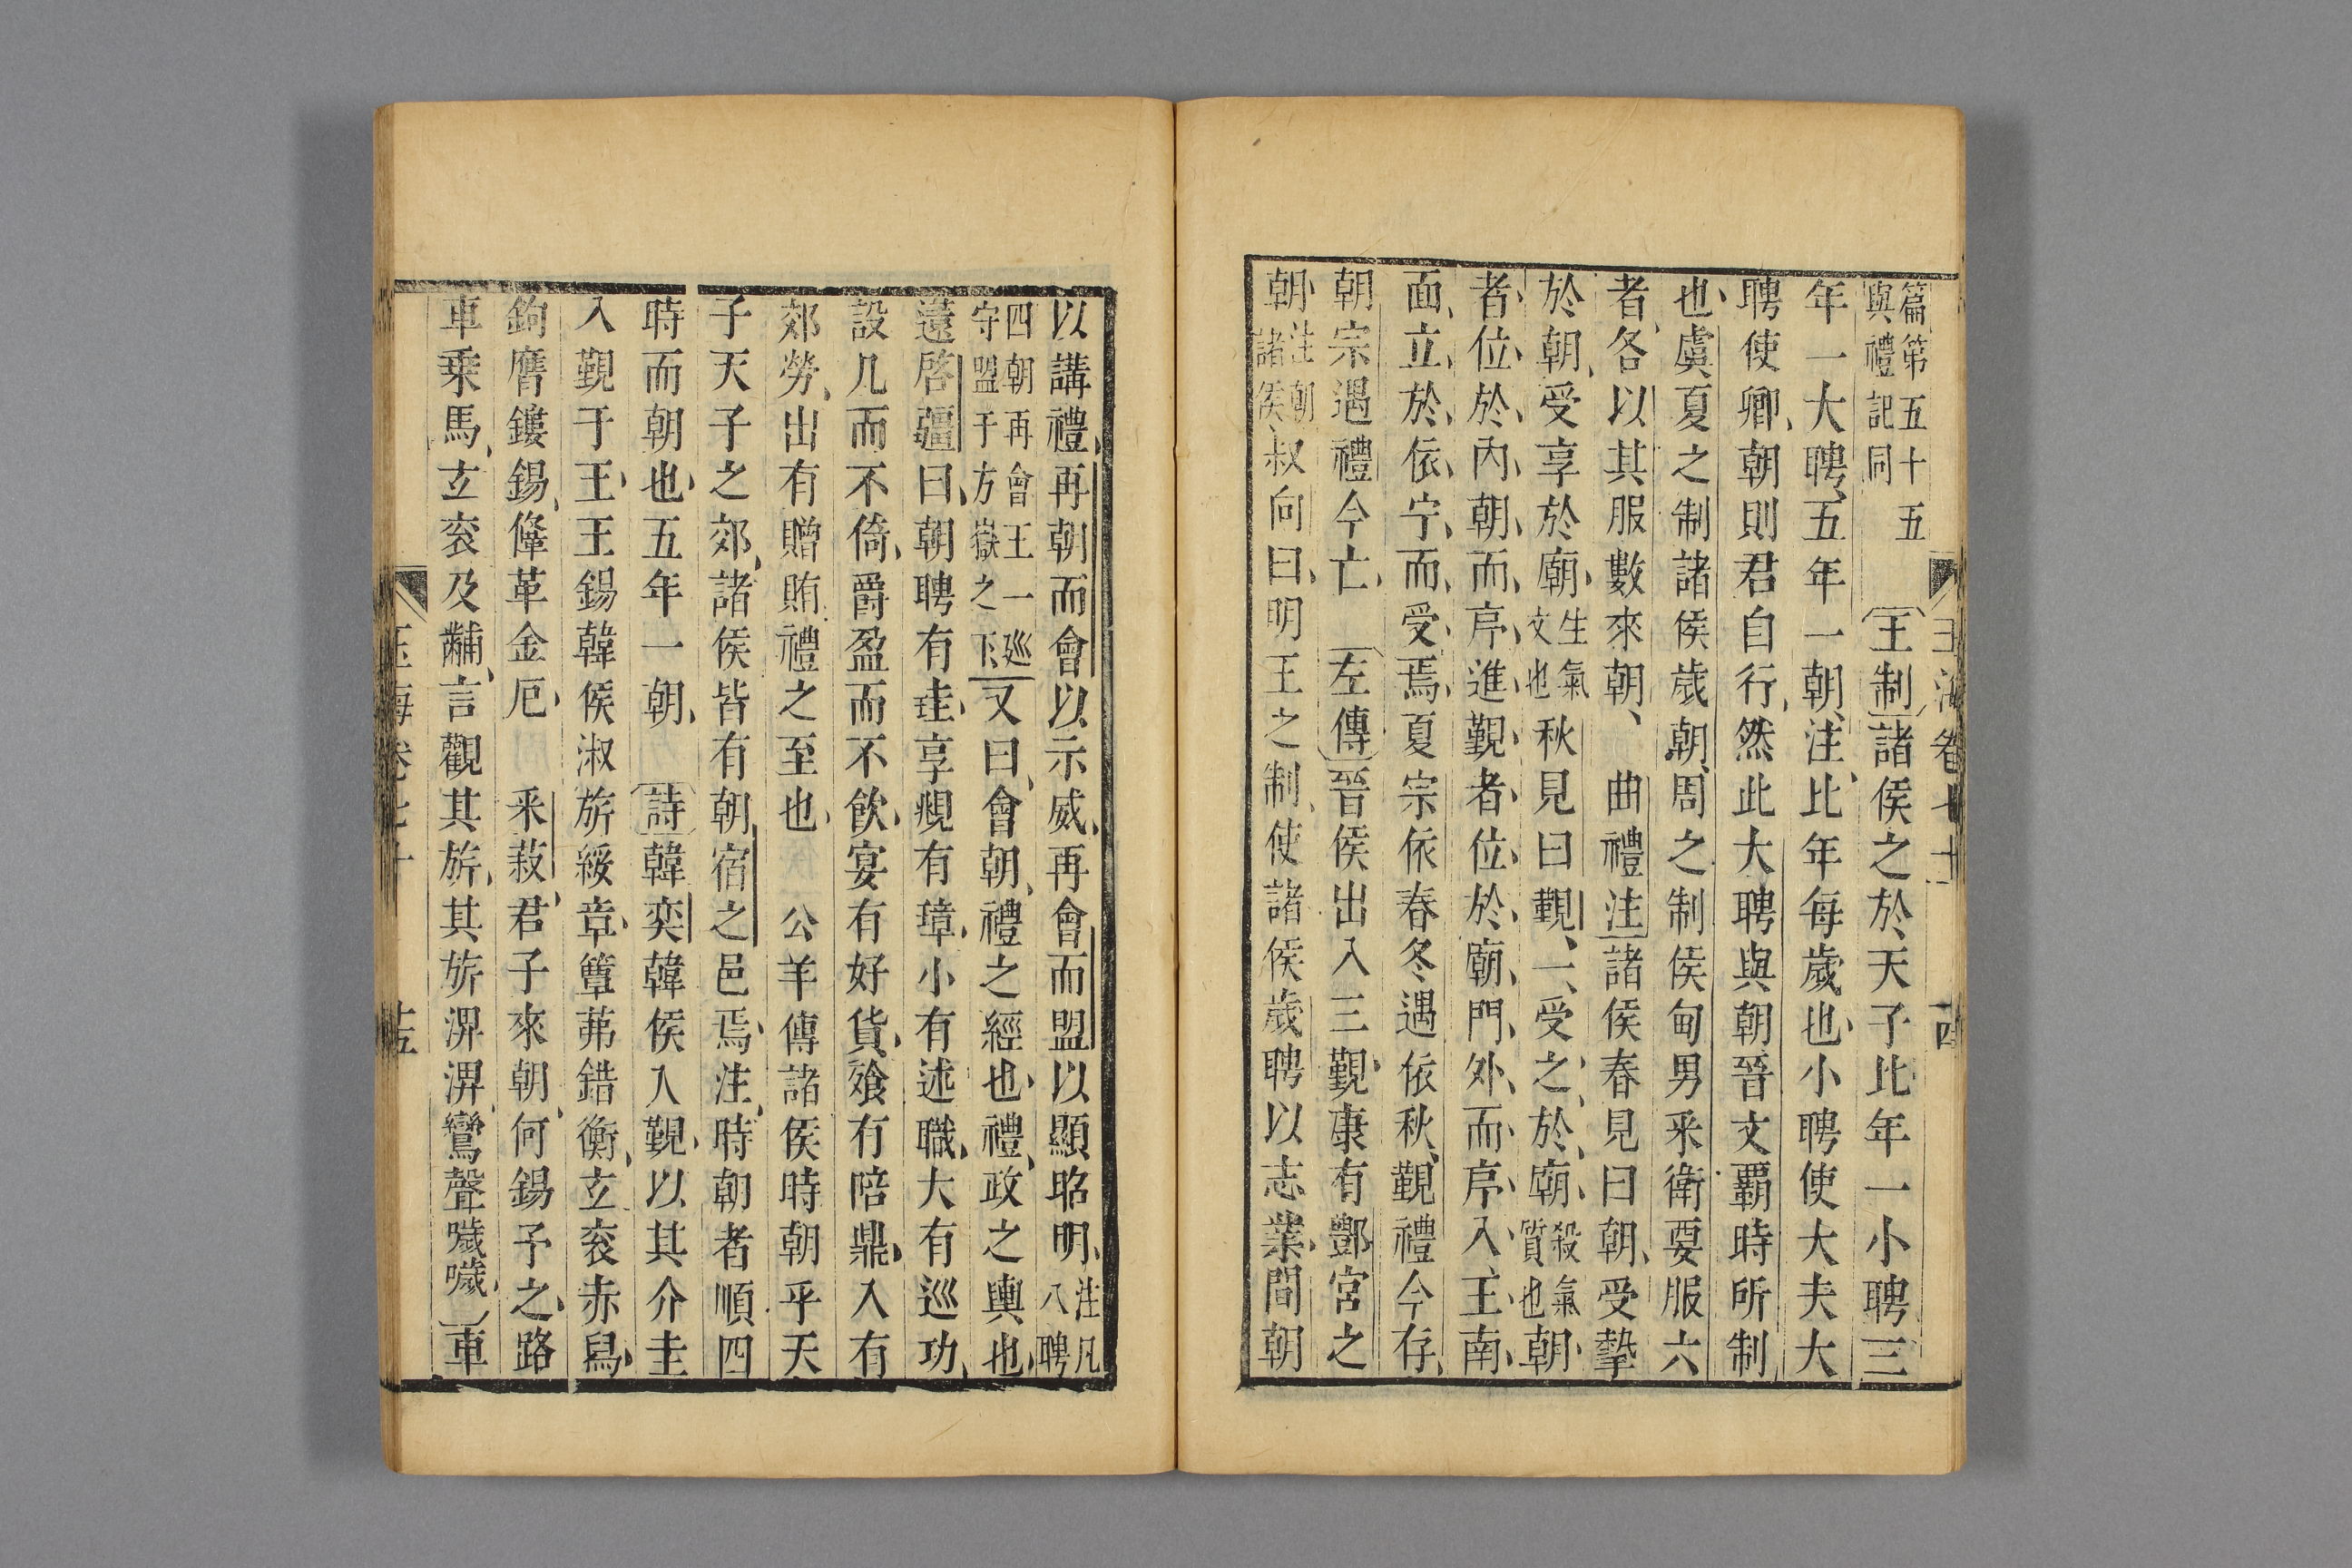 篇第五十五
與禮記同
王制諸侯之於天子比年一小聘三
年一大聘五年一朝注比年每歲也小聘使大夫大
聘使卿朝則君自行然此大聘與朝晉文霸時所制
也虞夏之制諸侯歲朝周之制侯甸男采衛要服六
者各以其服數來朝 曲禮注諸侯春見曰朝受摯
於朝受享於廟生氣文也秋見曰覲一受之於廟殺氣質也朝
者位於內朝而序進覲者位於廟門外而序入王南
面立於依宁而受焉夏宗依春冬遇依秋覲禮今存
朝宗遇禮今亡 左傳晉侯出入三覲康有酆宮之
朝注朝諸侯叔向曰明王之制使諸侯歲聘以志業間朝
以講禮再朝而會以示威再會而盟以顯昭明注凡八聘
四朝再會王一巡守盟于方嶽之下又曰會朝禮之經也禮政之輿也
薳啓彊曰朝聘有珪享覜有璋小有述職大有巡功
設几而不倚爵盈而不飲宴有好貨飧有陪鼎入有
郊勞出有贈賄禮之至也 公羊傳諸侯時朝乎天
子天子之郊諸侯皆有朝宿之邑焉注時朝者順四
時而朝也五年一朝 詩韓奕韓侯入覲以其介圭
入覲于王王錫韓侯淑旂綏章簟茀錯衡玄袞赤舄
鉤膺鏤錫鞗革金厄 采菽君子來朝何錫予之路
車乘馬玄袞及黼言觀其旂其旂淠淠鸞聲嘒嘒車
玉海卷七十
十五